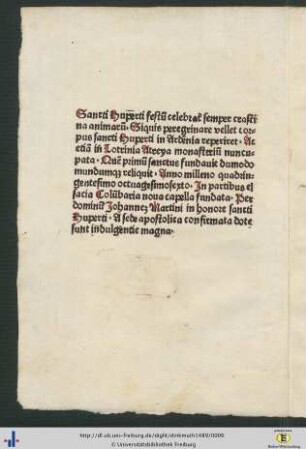 Sancti Huṗerti festū celebrat᷑ semper crasti
na animarū. Siquis peregrinare vellet cor
pus sancti Huperti in Ardēnia reperiret. Ac
etiā in Lotrinia Atreya monasteriū nuncu
pata. Quē primū sanctus fundauit dumodo
mundumqꝫ reliquit. Anno milleno quadrin
gentesimo octuagesimosexto. In partibus el
sacia Colūbaria noua capella fundata. Per
dominū Johannez Martini in honore sancti
Huperti. A sede apostolica confirmata dote
sunt indulgentie magna.
http://dl.ub.uni-freiburg.de/diglit/stmkmath1489/0006
© Universitätsbibliothek Freiburg